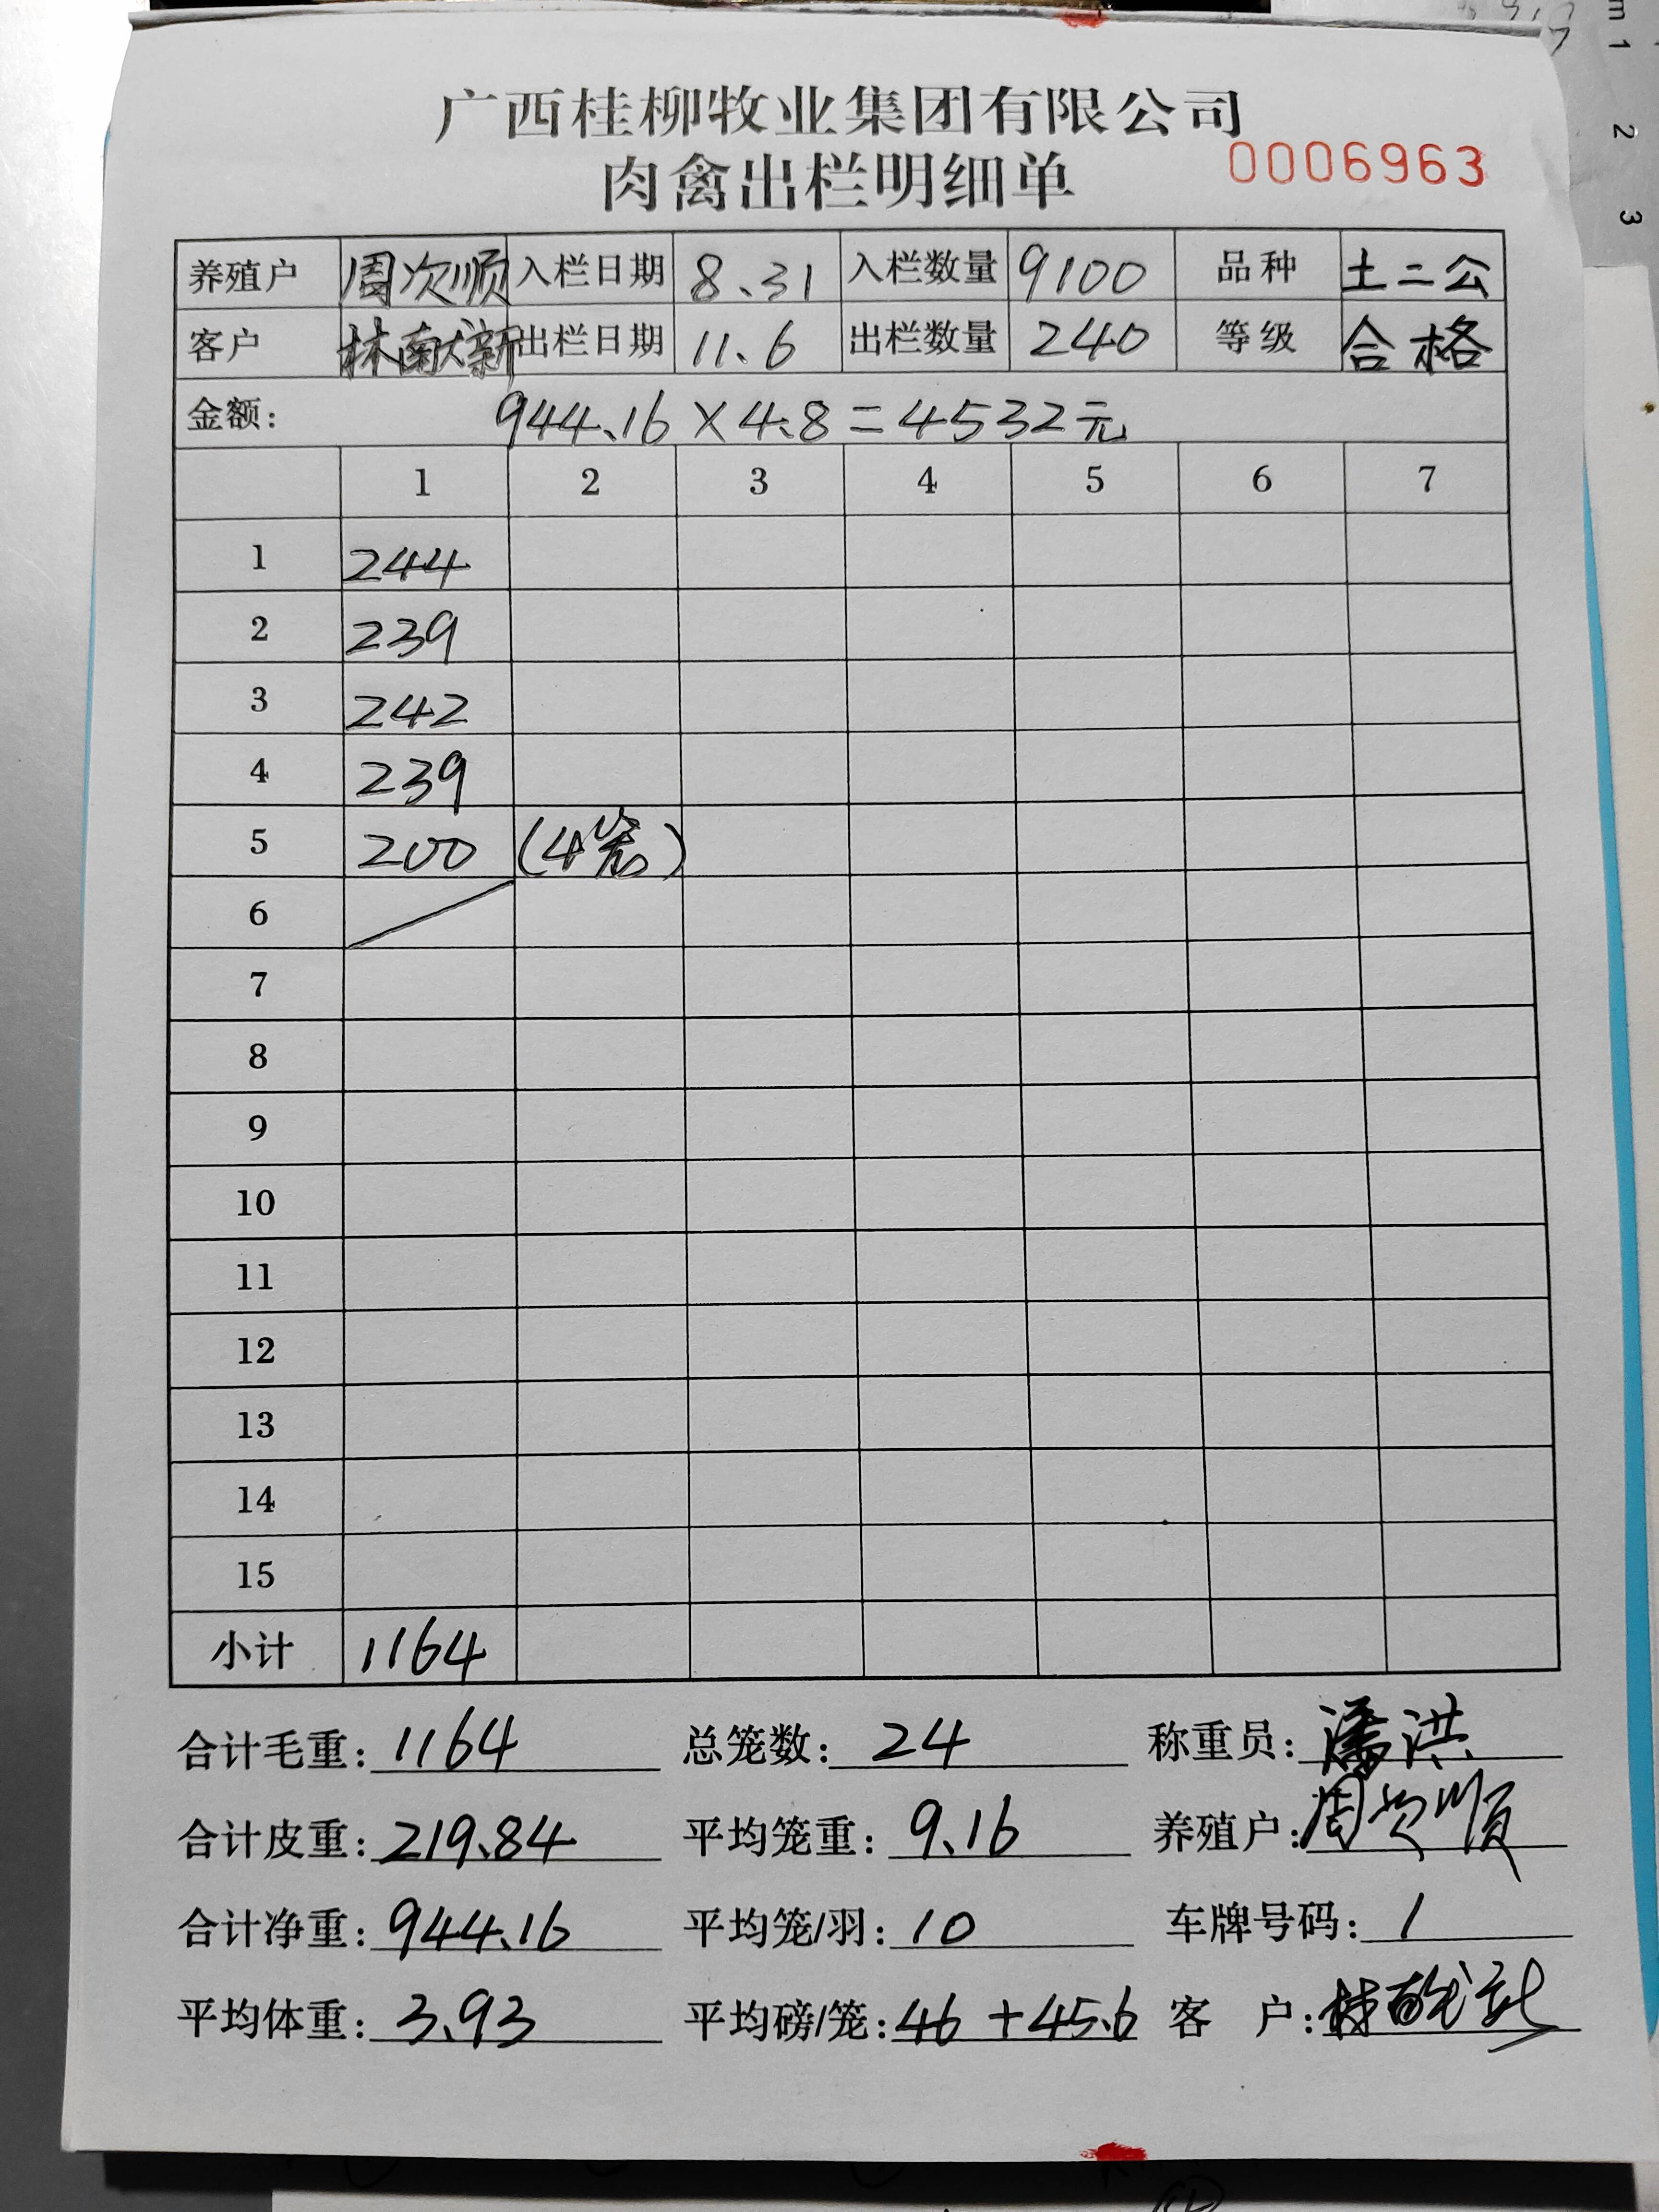 广西桂柳牧业集团有限公司
肉禽出栏明细单 0006963
养殖户 周次顺 入栏日期 8.31 入栏数量 9100 品种 土二公
客户 林献新 出栏日期 11.6 出栏数量 240 等级 合格
金额: 944.16×4.8=4532元
1 2 3 4 5 6 7
1 244
2 239
3 242
4 239
5 200 (4笼)
6
7
8
9
10
11
12
13
14
15
小计 1164
合计毛重: 1164 总笼数: 24 称重员: 潘洪
合计皮重: 219.84 平均笼重: 9.16 养殖户: 周次顺
合计净重: 944.16 平均笼/羽: 10 车牌号码: 1
平均体重: 3.93 平均磅/笼: 46+45.6 客 户: 林献新
m 1 2 3